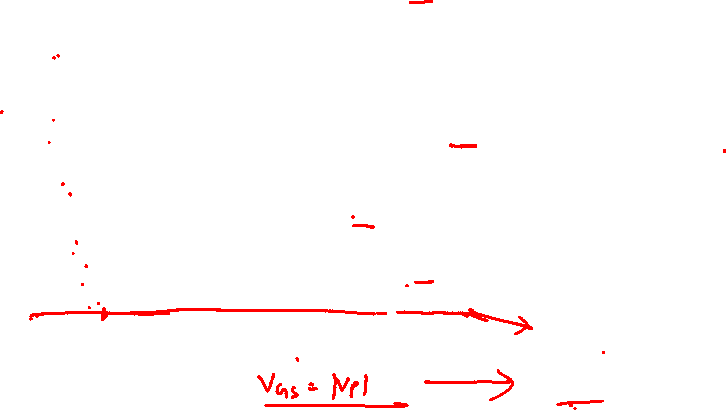 V_GS = |Vp|